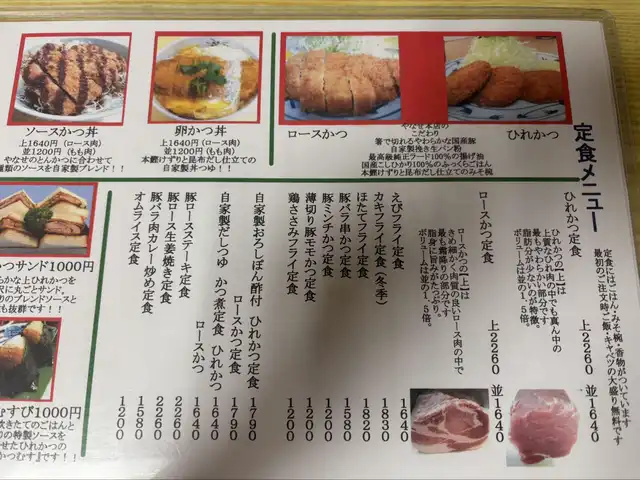 ソースかつ丼
上1640円(ロース肉)
並1200円(もも肉)
やなせのとんかつに合わせて
類のソースを自家製ブレンド!!
卵かつ丼
上1640円(ロース肉)
並1200円(もも肉)
本鰹けずりと昆布だし仕立ての
自家製丼つゆ!!
ロースかつ
やなせ本店の
こだわり
箸で切れるやわらかな国産豚
自家製挽き生パン粉
最高級純正ラード100%の揚げ油
国産こしひかり100%のふっくらごはん
本鰹けずりと昆布だし仕立てのみそ椀
ひれかつ
定食メニュー
定食にはごはん・みそ椀・香物がついています
最初のご注文時、ご飯・キャベツの大盛り無料です
ひれかつ定食 上2260 並1640
ひれかつの【上】は
上質なひれ肉の中でも真ん中の
最もやわらかい部分です
脂肪分が少ないのが特徴。
ボリュームは並の1.5倍。
ロースかつ定食 上2260 並1640
ロースかつの【上】は
きめ細かく肉質の良いロース肉の中で
最も霜降りの部分です
脂身に旨みがたっぷり。
ボリュームは並の1.5倍。
えびフライ定食 1640
カキフライ定食(冬季) 1830
ほたてフライ定食 1820
豚バラ串かつ定食 1580
豚ミンチかつ定食 1200
薄切り豚モモかつ定食 1200
鶏ささみフライ定食 1200
自家製おろしぽん酢付 ひれかつ定食 1790
ロースかつ定食 1790
自家製だしつゆ かつ煮定食 ひれかつ 1640
ロースかつ 1640
豚ロースステーキ定食 2260
豚ロース生姜焼き定食 2260
豚バラ肉カレー炒め定食 1580
オムライス定食 1200
つサンド1000円
の上ひれかつを
沢に丸ごとサンド。
りのブレンドソースと
も抜群です!!
むすび1000円
炊きたてのごはんと
りの特製ソースを
せたひれかつの
かつむす』です!!